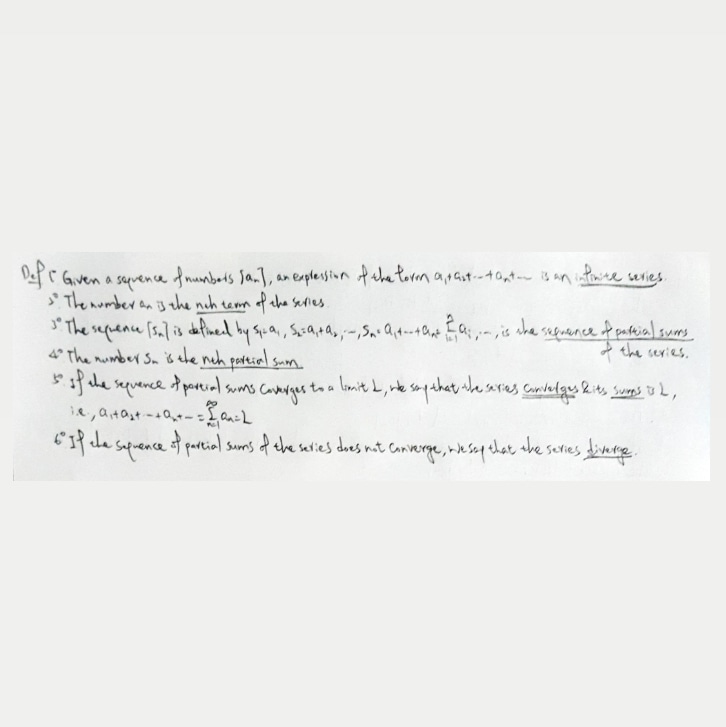 Def 1° Given a sequence of numbers {an}, an expression of the form a1+a2+...+an+... is an infinite series.
2° The number an is the nth term of the series.
3° The sequence {Sn} is defined by S1=a1, S2=a1+a2, ..., Sn=a1+...+an= \sum_{i=1}^{n} ai, ..., is the sequence of partial sums
of the series.
4° The number Sn is the nth partial sum
5° If the sequence of partial sums Coverges to a limit L, we say that the series converges & its sums is L,
i.e., a1+a2+...+an+...= \sum_{n=1}^{∞} an=L
6° If the sequence of partial sums of the series does not Converge, we say that the series diverge.